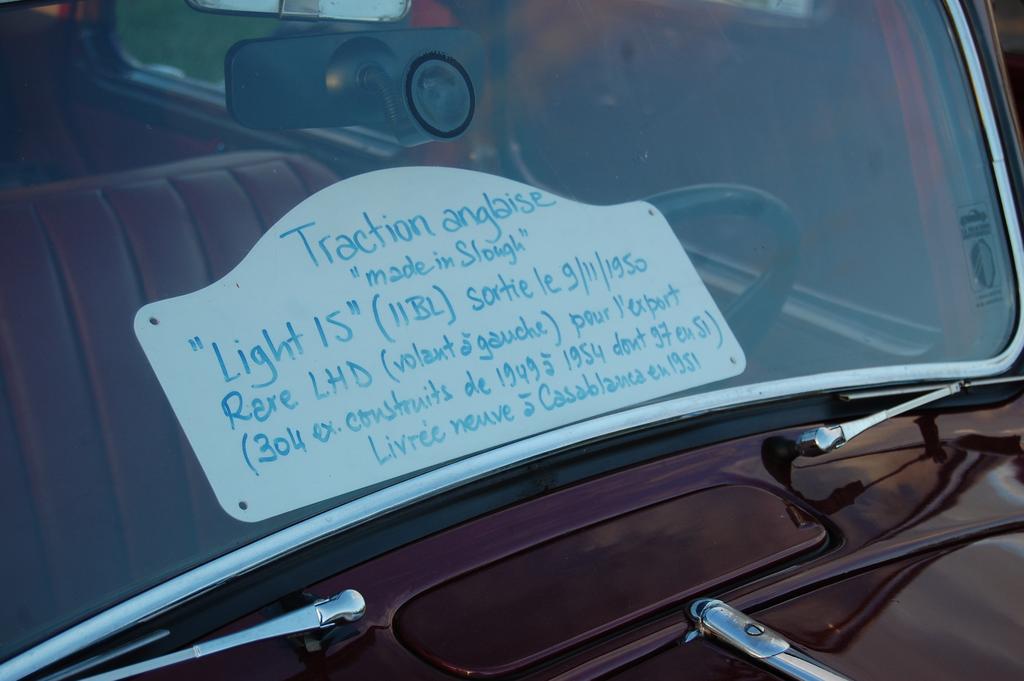 Traction anglaise
"made in Slough"
"Light 15" (11BL) sortie le 9/11/1950
Rare LHD (volant à gauche) pour l'export
(304 ex. construits de 1949 à 1954 dont 97 en 51)
Livrée neuve à Casablanca en 1951